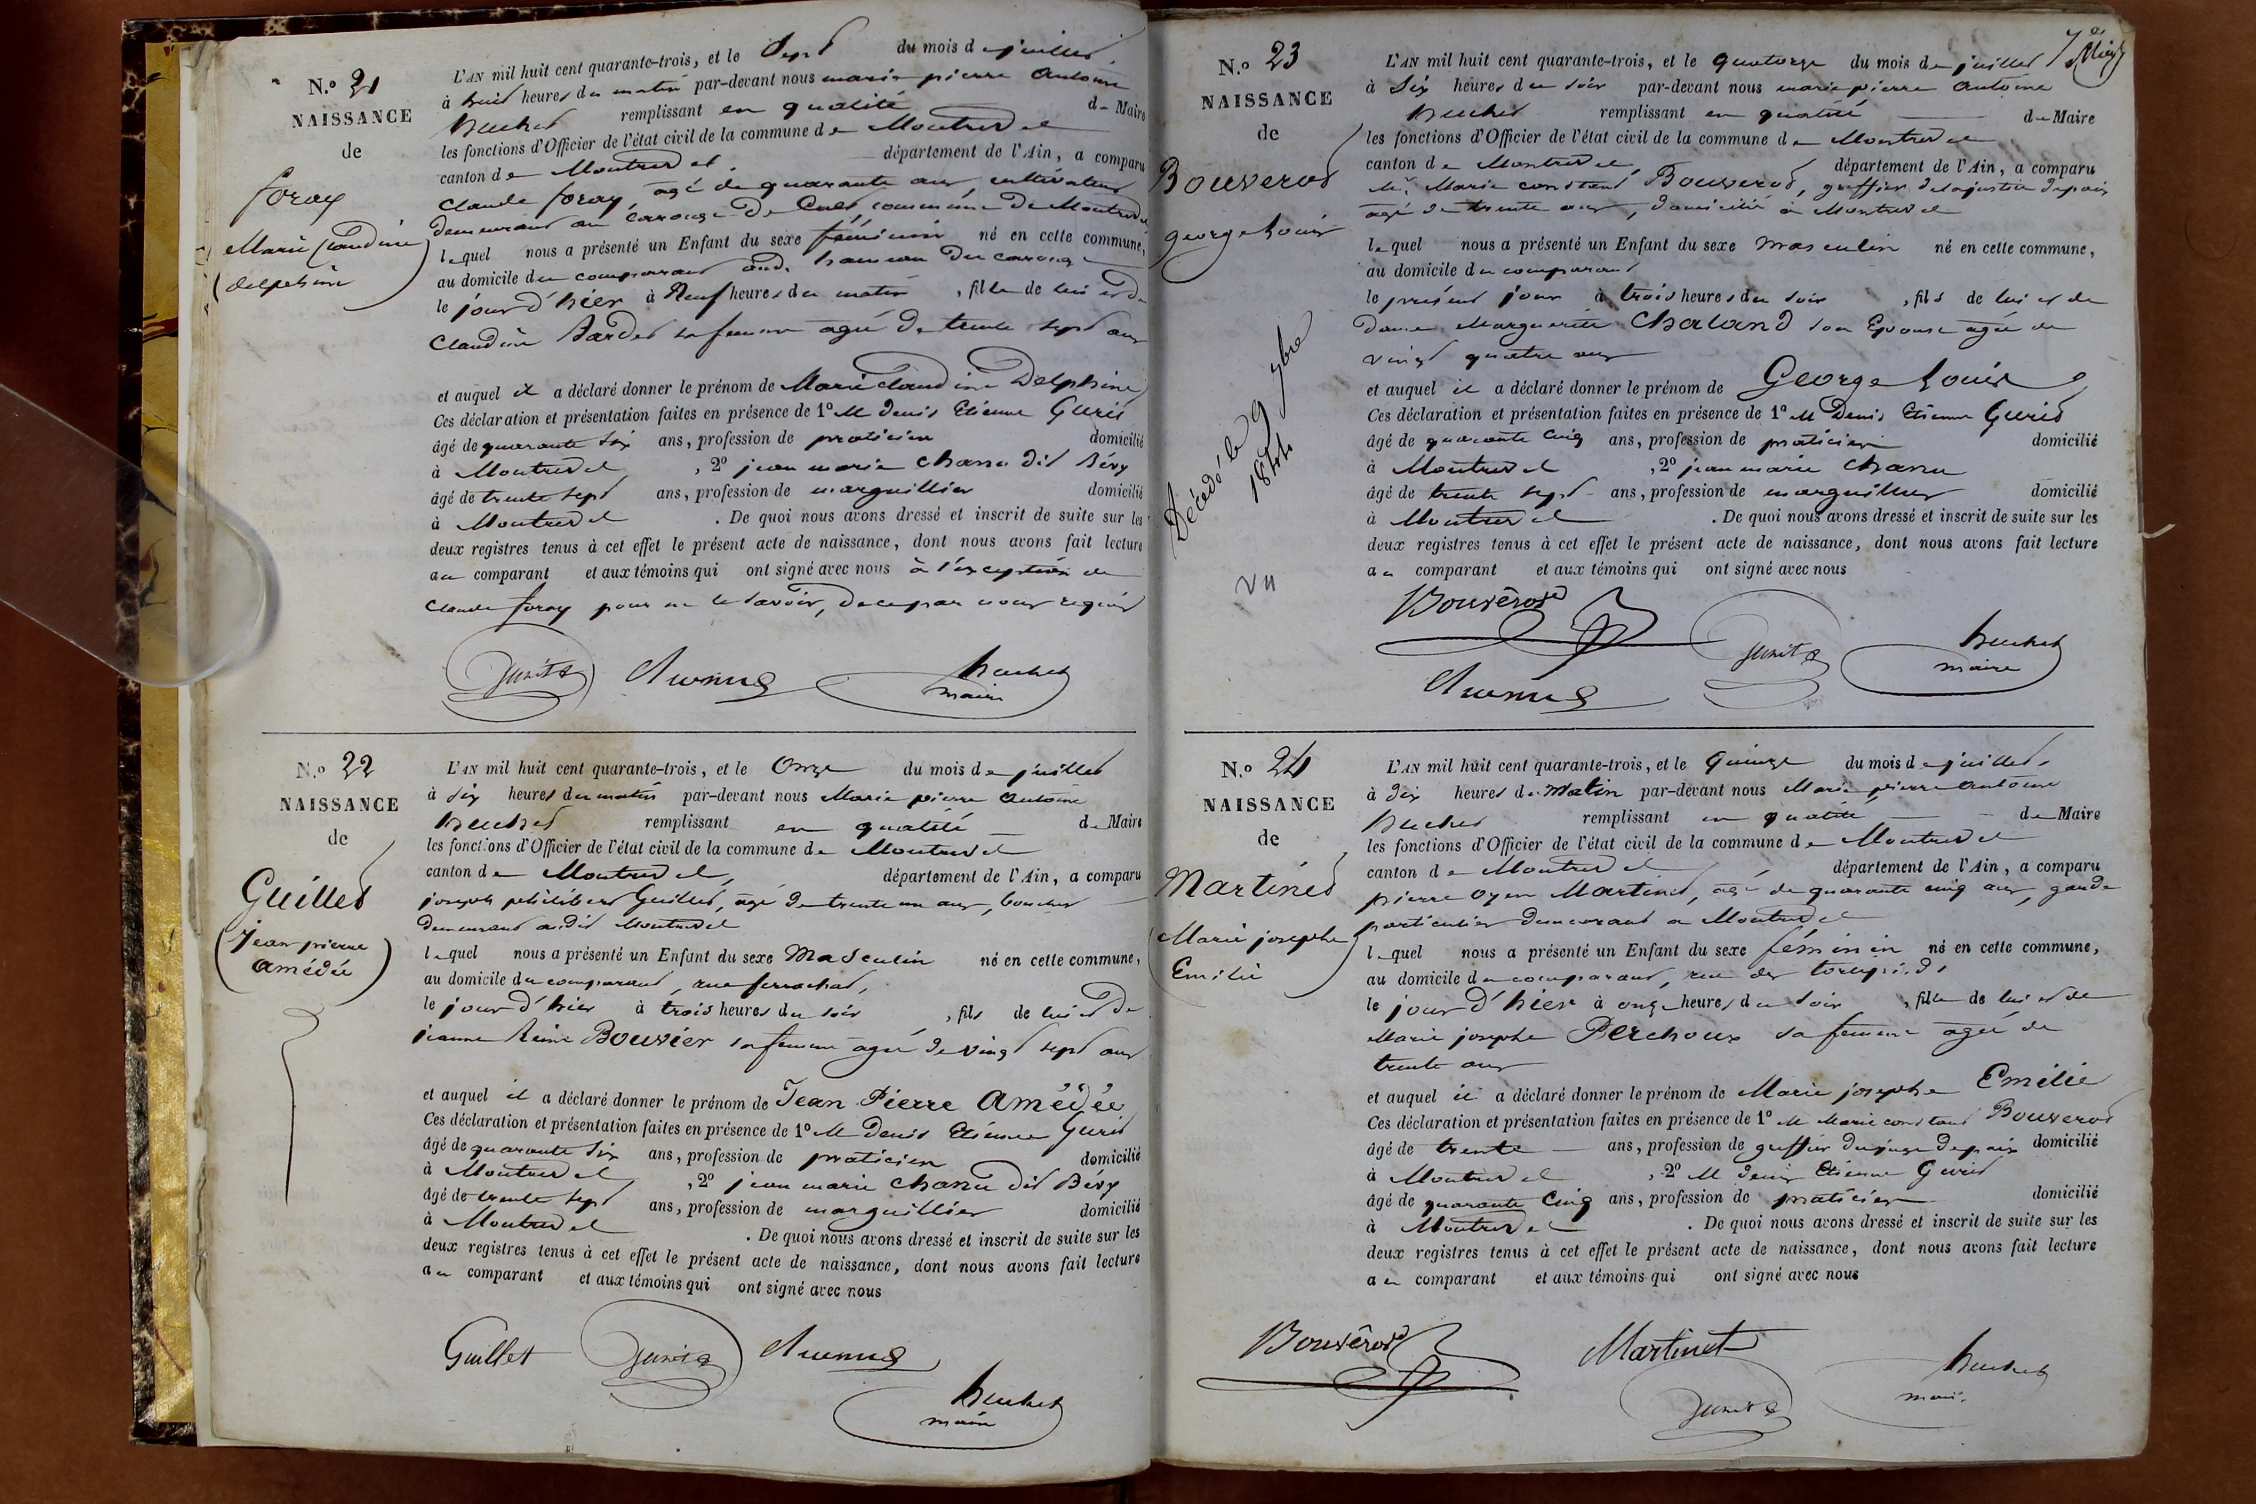 N.o 21
NAISSANCE
de
foray
Marie Claudine
delphine
L'AN mil huit cent quarante-trois, et le Sept du mois de juillet
à huit heures du matin par-devant nous marie pierre antoine
huchet remplissant en qualité de Maire
les fonctions d'Officier de l'état civil de la commune de Montrevel
canton de Montrevel département de l'Ain, a comparu
Claude foray, agé de quarante ans, cultivateur
demeurant au carouge de Cuet, commune de Montrevel
lequel nous a présenté un Enfant du sexe féminin né en cette commune,
au domicile du comparant aud. hameau du carouge
le jour d'hier à Neuf heures du matin, fille de lui et de
Claudine Bardet sa femme agée de trente sept ans
et auquel il a déclaré donner le prénom de Marie Claudine Delphine
Ces déclaration et présentation faites en présence de 1o M denis Etienne Gurit
âgé de quarante six ans, profession de praticien domicilié
à Montrevel, 2o jean marie Chanu dit Bévy
âgé de trente sept ans, profession de marguillier domicilié
à Montrevel. De quoi nous avons dressé et inscrit de suite sur les
deux registres tenus à cet effet le présent acte de naissance, dont nous avons fait lecture
au comparant et aux témoins qui ont signé avec nous à l'exception de
Claude foray pour ne le savoir, de ce par nous requis
huchet
maire
N.o 22
NAISSANCE
de
Guillet
(jean pierre
amédée)
L'AN mil huit cent quarante-trois, et le Onze du mois de juillet
à six heures du matin par-devant nous Marie pierre antoine
huchet remplissant en qualité de Maire
les fonctions d'Officier de l'état civil de la commune de Montrevel
canton de Montrevel, département de l'Ain, a comparu
joseph philibert Guillet, agé de trente un ans, boucher
demeurant audit Montrevel
lequel nous a présenté un Enfant du sexe Masculin né en cette commune,
au domicile du comparant, rue ferrachat,
le jour d'hier à trois heures du soir, fils de lui et de
jeanne Reine Bouvier sa femme agée de vingt sept ans
et auquel il a déclaré donner le prénom de Jean Pierre Amédée
Ces déclaration et présentation faites en présence de 1o M denis Etienne Gurit
âgé de quarante six ans, profession de praticien domicilié
à Montrevel, 2o jean marie Chanu dit Bévy
âgé de trente sept ans, profession de marguillier domicilié
à Montrevel. De quoi nous avons dressé et inscrit de suite sur les
deux registres tenus à cet effet le présent acte de naissance, dont nous avons fait lecture
au comparant et aux témoins qui ont signé avec nous
Guillet
huchet
maire
N.o 23
NAISSANCE
de
Bouverod
george Louis
Décédé le 9 7bre
1844
vu
L'AN mil huit cent quarante-trois, et le quatorze du mois de juillet
à Six heures du soir par-devant nous marie pierre antoine
huchet remplissant en qualité de Maire
les fonctions d'Officier de l'état civil de la commune de Montrevel
canton de Montrevel, département de l'Ain, a comparu
Mr. Marie constant Bouverod, greffier de la justice de paix
agé de trente ans, domicilié à Montrevel
lequel nous a présenté un Enfant du sexe masculin né en cette commune,
au domicile du comparant
le présent jour à trois heures du soir, fils de lui et de
Dame Marguerite Chaland son Epouse agée de
vingt quatre ans
et auquel il a déclaré donner le prénom de George Louis
Ces déclaration et présentation faites en présence de 1o M Denis Etienne Gurit
âgé de quarante cinq ans, profession de praticien domicilié
à Montrevel, 2o jean marie Chanu
âgé de trente sept ans, profession de marguillier domicilié
à Montrevel. De quoi nous avons dressé et inscrit de suite sur les
deux registres tenus à cet effet le présent acte de naissance, dont nous avons fait lecture
au comparant et aux témoins qui ont signé avec nous
Bouverod
huchet
maire
N.o 24
NAISSANCE
de
Martinet
(Marie josephe
Emilie)
L'AN mil huit cent quarante-trois, et le Quinze du mois de juillet
à dix heures du Matin par-devant nous Marie pierre antoine
huchet remplissant en qualité de Maire
les fonctions d'Officier de l'état civil de la commune de Montrevel
canton de Montrevel, département de l'Ain, a comparu
pierre oyen Martinet, agé de quarante cinq ans, garde
particulier demeurant a Montrevel
lequel nous a présenté un Enfant du sexe féminin né en cette commune,
au domicile du comparant, rue des
le jour d'hier à onze heures du soir, fille de lui et de
Marie josephe Perchoux sa femme agée de
trente ans
et auquel il a déclaré donner le prénom de Marie josephe Emélie
Ces déclaration et présentation faites en présence de 1o M Marie constant Bouverod
âgé de trente ans, profession de greffier du juge de paix domicilié
à Montrevel, 2o M denis Etienne Gurit
âgé de quarante Cinq ans, profession de praticien domicilié
à Montrevel. De quoi nous avons dressé et inscrit de suite sur les
deux registres tenus à cet effet le présent acte de naissance, dont nous avons fait lecture
au comparant et aux témoins qui ont signé avec nous
Bouverod
Martinet
huchet
maire